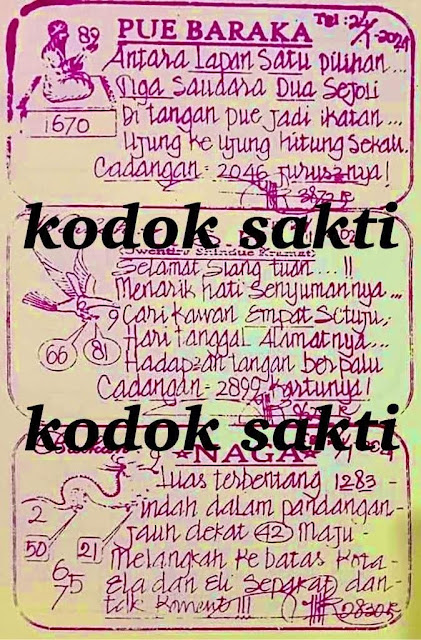 PUE BARAKA
Tgl : 24/1-2024
89
1670
Antara Lapan Satu pilihan...
Tiga Saudara Dua Sejoli
Di tangan pue jadi ikatan...
Ujung ke ujung hitung sekali.
Cadangan = 2046 jurusnya!
kodok sakti
Selamat Siang tuan...!!
Menarik hati Senyumannya...
9
66
81
Cari kawan Empat Setuju,
Hari Tanggal Alamatnya...
Hadapan tangan berpalu
Cadangan = 2899 kartunya!
kodok sakti
NAGA
2
50
21
6
75
Luas terbentang 1283 -
indah dalam pandangan -
jauh dekat 42 Maju -
Melangkah ke batas kota -
Ela dan Eli Sepakat dan -
tak koment !!!